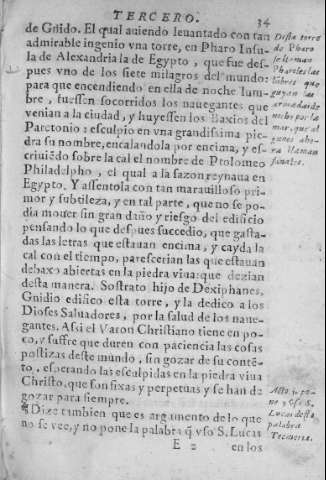 TERCERO.
34
de Gnido. El qual auiendo leuantado con tan
admirable ingenio vna torre, en Pharo Insu-
la de Alexandria la de Egypto, que fue des-
pues vno de los siete milagros del mundo:
para que encendiendo en ella de noche lum-
bre, fuessen socorridos los nauegantes que
venian a la ciudad, y huyessen los Baxios del
Paretonio: esculpio en vna grandissima pie-
dra su nombre, encalandola por encima, y es-
criuiẽdo sobre la cal el nombre de Ptolomeo
Philadelpho, el qual a la sazon reynaua en
Egypto. Y assentola con tan marauilloso pri-
mor y subtileza, y en tal parte, que no se po-
dia mouer sin gran daño y riesgo del edificio
pensando lo que despues succedio, que gasta-
das las letras que estauan encima, y cayda la
cal con el tiempo, parescerian las que estauan
debaxo abiertas en la piedra viua: que dezian
desta manera. Sostrato hijo de Dexiphanes,
Gnidio edifico esta torre, y la dedico a los
Dioses Saluadores, por la salud de los naue-
gantes. Assi el Varon Christiano tiene en po-
co, y suffre que duren con paciencia las cosas
postizas deste mundo, sin gozar de su contẽ-
to, esperando las esculpidas en la piedra viua
Christo, que son fixas y perpetuas y se han de
gozar para siempre.
¶ Dize tambien que es argumento de lo que
no se vee, y no pone la palabra q̃ vso S. Lucas
E 2
en los
Desta torre
de Pharo
se llaman
Pharoles las
lũbres que
guyan las
armadas de
noche por la
mar, que al
gunos aho-
ra llaman
fanales.
S.
Lucas desta
palabra
Tecmeria.